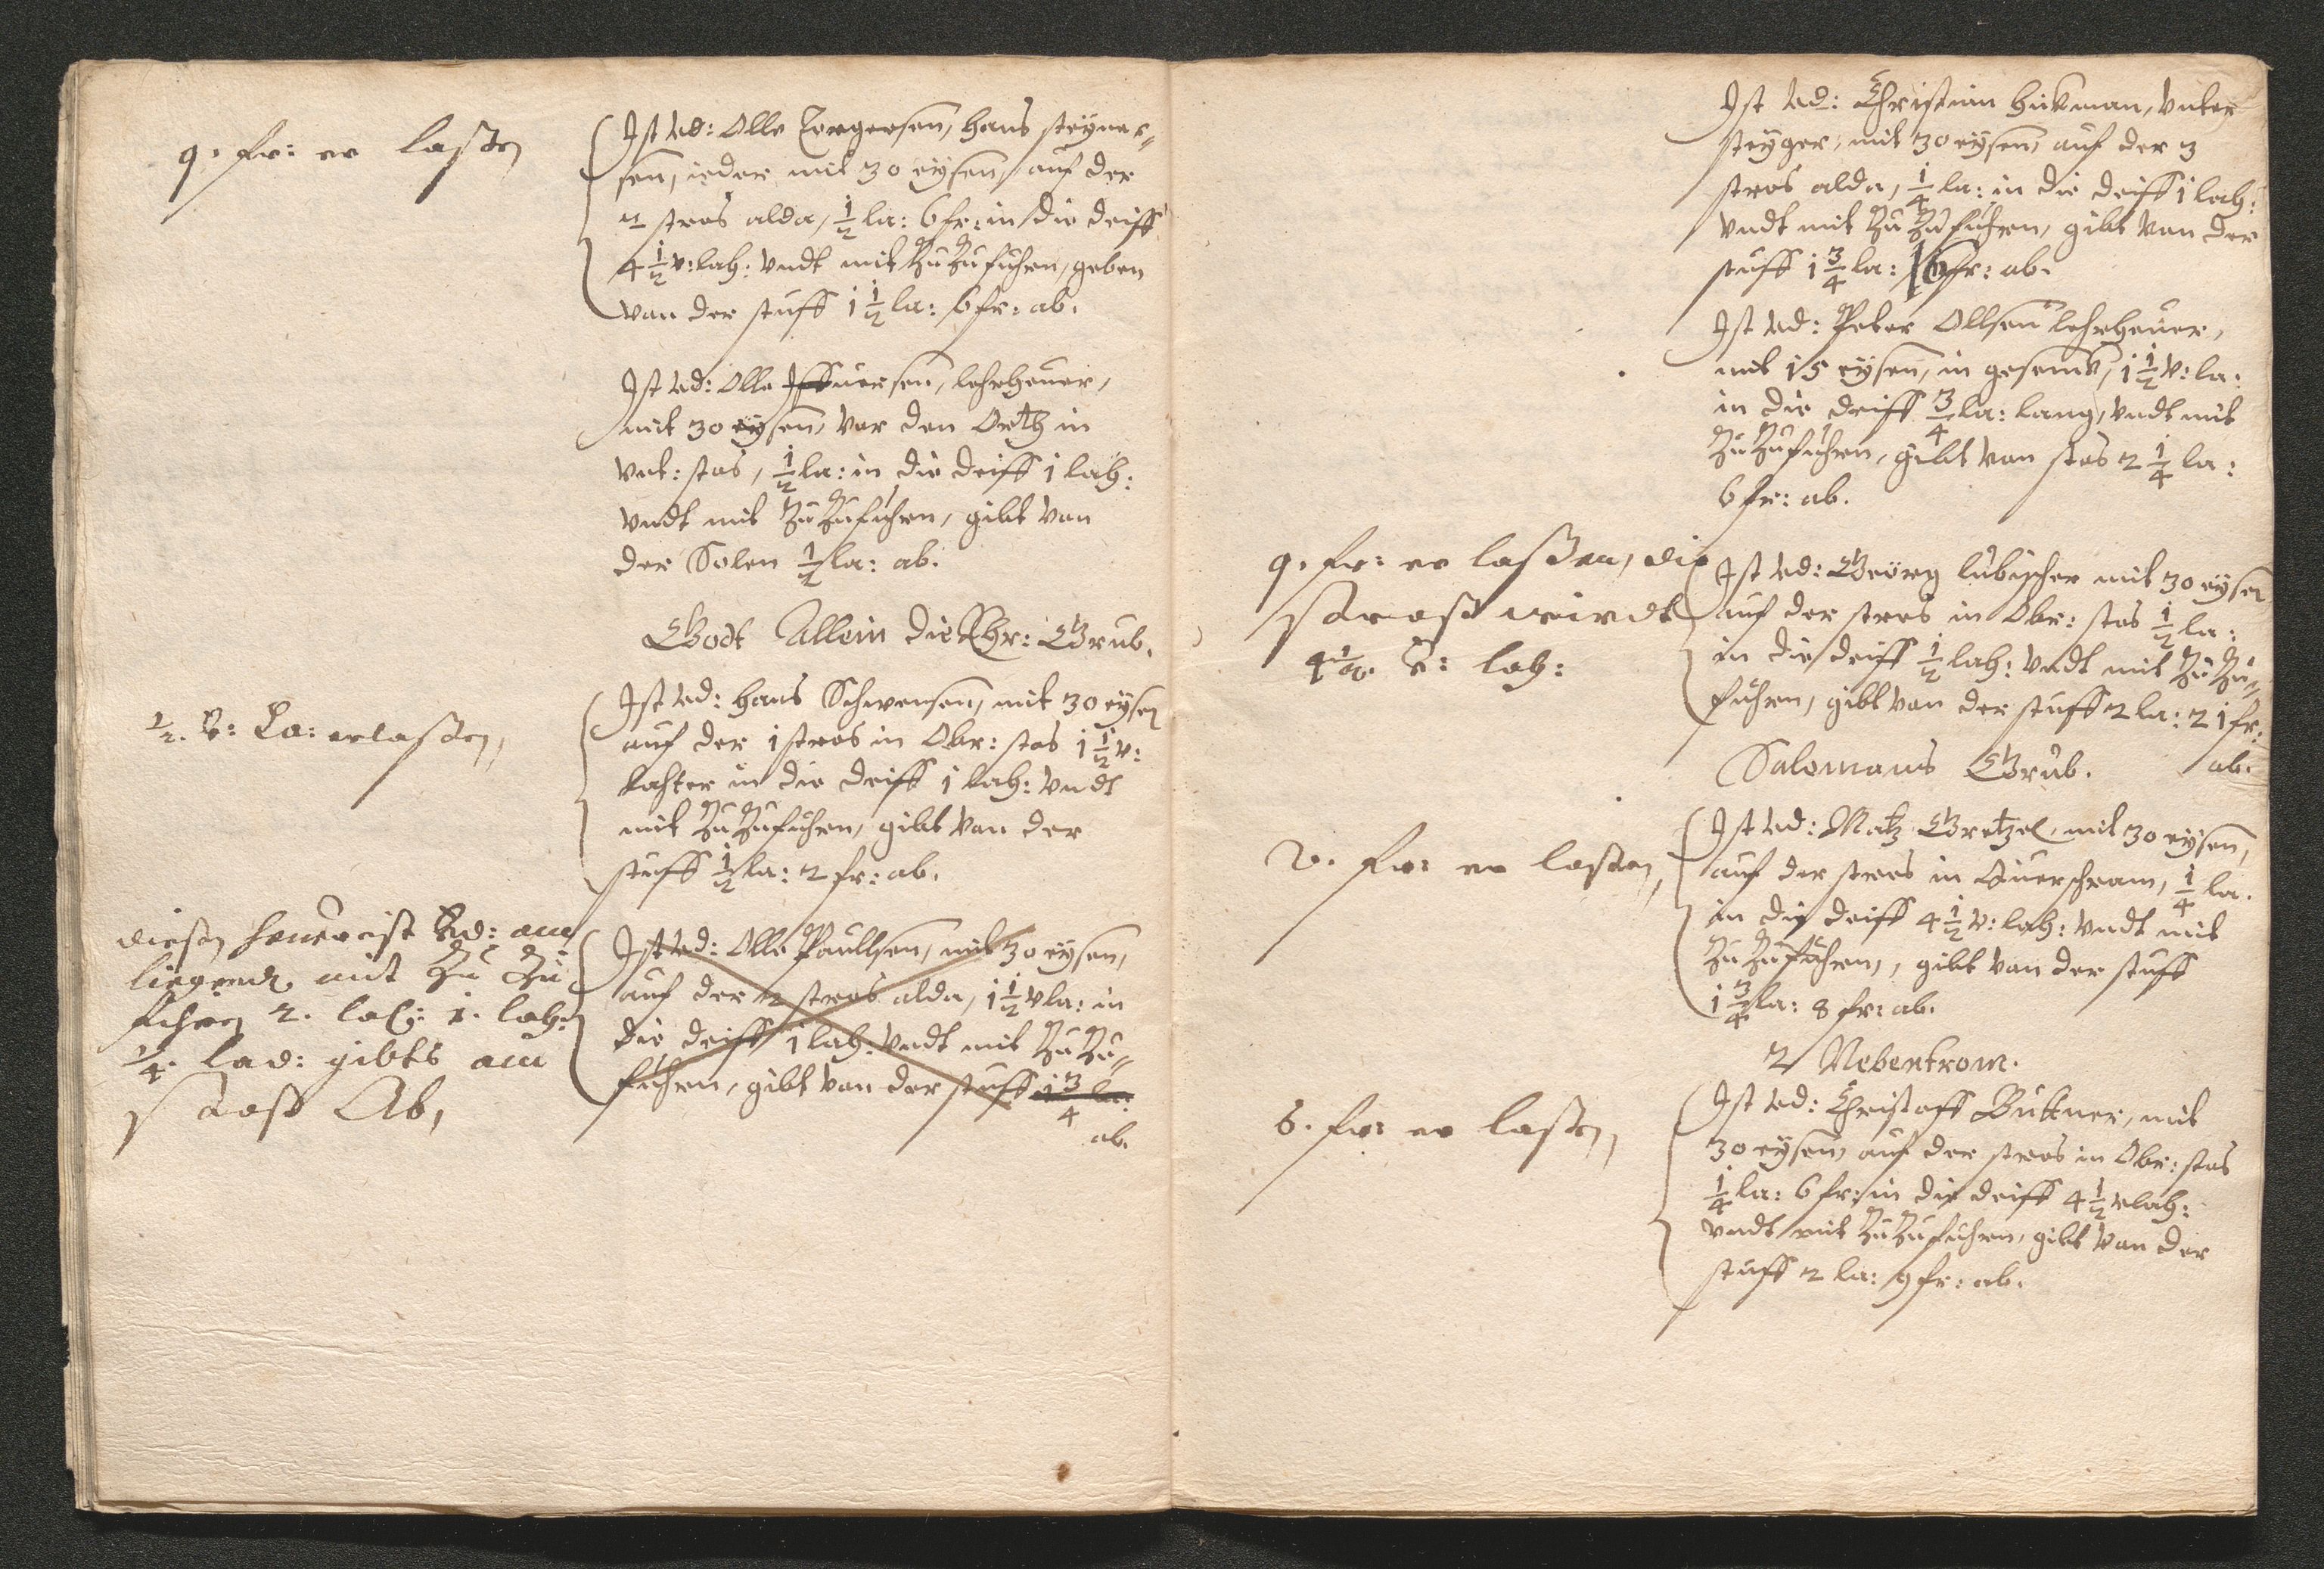 9. fr: er lasten
Ist ad: Olle Torgersen, hans steyner=
sen, ieder mit 30 eysen, auf der
2 stros alda, 1/2 la: 6 fr: in die deiff
4 1/2 v: lah: vndt mit Zu Zufuhren, geben
van der stuff 1 1/2 la: 6 fr: ab.
Ist ad: Olle Iffuersen, lehrheuer,
mit 30 eysen, vor den Ortth in
vnt: stos, 1/2 la: in die deiff 1 lah:
vndt mit Zu Zufuhren, gibt van
der Solen 1/2 la: ab.
Gott Allein die Ehr: Grub.
1/2. v: La: erlasten,
Ist ad: hans Schwensen, mit 30 eysen
auf der 1 stros in Obr: stos 1 1/2 v:
lahter in die deiff 1 lah: vndt
mit Zu Zufuhren, gibt van der
stuff 1/2 la: 2 fr: ab.
diesen heuer ist ad: am
liegend mit Zu Zu
fuhren 2. lah: 1. lah:
1/4. lad: gibts am
stoss Ab,
Ist ad: Olle Paullsen, mit 30 eysen,
auf der 2 stros alda, 1 1/2 vla: in
die deiff 1 lah: vndt mit Zu Zu=
fuhren, gibt van der stuff 1 3/4 la:
ab.
Ist ad: Christian hickman, vnter
steyger, mit 30 eysen, auf der 3
stros alda, 1/4 la: in die deiff 1 lah:
vndt mit Zu Zufuhren, gibt van der
stuff 1 3/4 la: 6 fr: ab.
Ist ad: Peter Ollsen lehrheuer,
mit 15 eysen, in gesenck, 1 1/2 v: la:
in die deiff 3/4 la: lang, vndt mit
Zu Zufuhren, gibt van stos 2 1/4 la:
6 fr: ab.
9. fr: er lassen, die
strass wirdt
4 1/2. v: lah:
Ist ad: Georg lubischer mit 30 eysen
auf der stros in Obr: stos 1/2 la:
in die deiff 1/2 lah: vndt mit Zu Zu=
fuhren, gibt van der stuff 2 la: 21 fr:
ab.
Salomans Grub.
2. fr: er lasten,
Ist ad: Matz Gretzel, mit 30 eysen,
auf der stros in Querschram, 1/4 la.
in die deiff 4 1/2 v: lah: vndt mit
Zu Zufuhren, gibt van der stuff
1 3/4 la: 8 fr: ab.
2 Nebentrom.
6. fr: er lasten,
Ist ad: Christoff Buttner, mit
30 eysen, auf der stros in Obr: stos
1/4 la: 6 fr: in die deiff 4 1/2 vlah:
vndt mit Zu Zufuhren, gibt van der
stuff 2 la: 9 fr: ab.